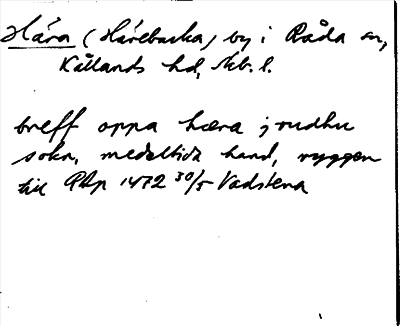 Håra (Hårebacka) by i Råda sn,
Kållands hd, Skb. l.
breff oppa hæra j rudhu
sokn, medeltida hand, ryggen
till Pbp 1472 30/5 Vadstena